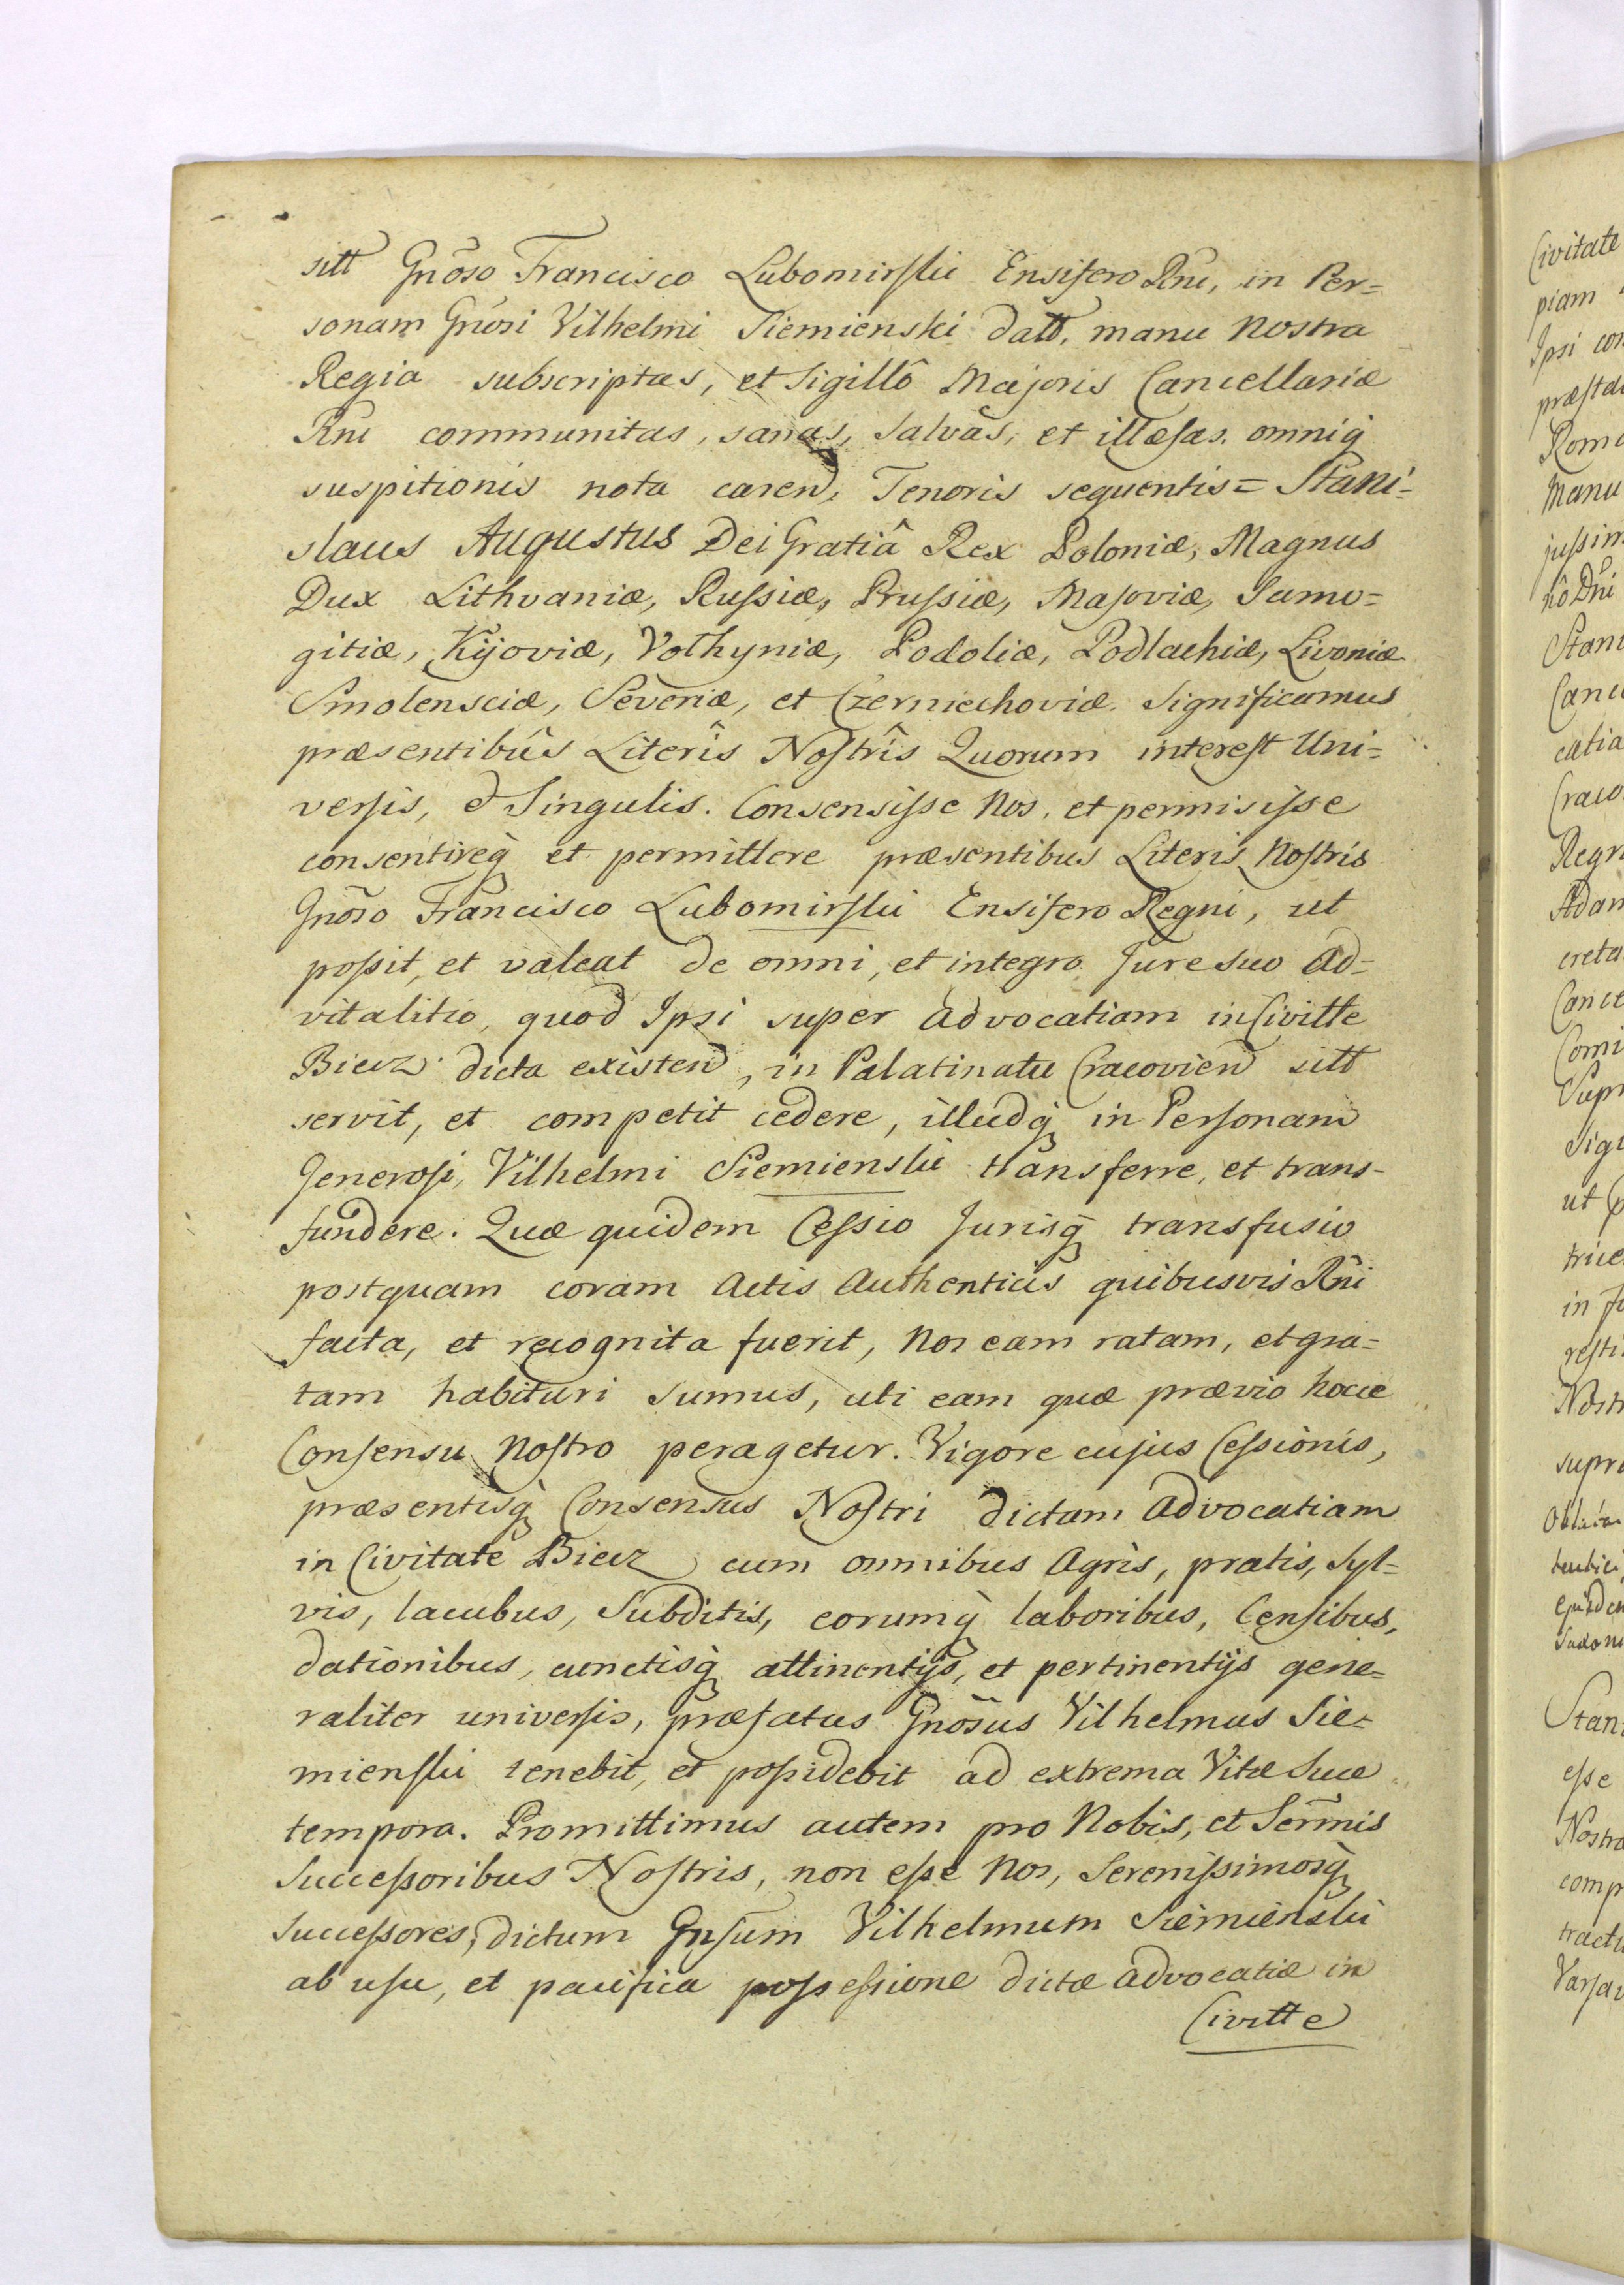 sitt Gnõso Francisco Lubomirski Ensifero Rni, in Per=
sonam Gnõsi Vilhelmi Siemienski datt, manu Nostra
Regia subscriptas, et Sigillô Majoris Cancellariæ
Rni communitas, sanas, salvâs, et illæsas, omniq̀
suspitionis nota carend, Tenoris sequentis = Stani=
slaus Augustus Dei Gratiâ Rex Poloniæ, Magnus
Dux Lithvaniæ, Russiæ, Prussiæ, Masoviæ, Samo=
gitiæ, Kijoviæ, Volhyniæ, Podoliæ, Podlachiæ, Livoniæ
Smolensciæ, Severiæ, et Czerniechoviæ. Significamus
præsentibûs Literîs Nostrîs Quorum interest Uni=
versis, et Singulis. Consensisse Nos, et permisisse
consentireq̀ et permittere præsentibus Literis Nostris
Gnõso Francisco Lubomirski Ensifero Regni, ut
possit, et valeat de omni, et integro Jure suo Ad=
vitalitio, quod Ipsi super Advocatiam in Civitte
Biecz dicta existend, in Palatinatu Cracovien sitt
servit, et competit cedere, illudq̀ in Personam
Generosi Vilhelmi Siemienski transferre, et trans-
fundere. Quæ quidem Cessio Jurisq̀ transfusio
postquam coram Actis Authenticis quibusvis Rni
facta, et recognita fuerit, Nos eam ratam, et gra=
tam habituri sumus, uti eam quæ prævio hocce
Consensu Nostro peragetur. Vigore cujus Cessionis,
præsentisq̀ Consensus Nostri dictam Advocatiam
in Civitate Biecz cum omnibus Agris, pratis, Syl=
vis, lacubus, Subditis, eorumq̀ laboribus, Censibus,
dationibus, cunctisq̀ attinentijs, et pertinentijs gene=
raliter universis, præfatus Gnõsus Vilhelmus Sie=
mienski tenebit, et possidebit ad extrema Vitæ Suæ
tempora. Promittimus autem pro Nobis, et Serm̃is
Successoribus Nostris, non esse Nos, Serenissimosq̀
Successores, dictum Gnsum Vilhelmum Siemienski
ab usu, et pacifica possessione dictæ Advocatiæ in
Civitte
Civitate
piam
Ipsi con
præsta
Roma
Manu
jussim
nô Dni
Stani
Canc
catia
Craco
Regn
Adam
creta
Cance
Comi
Supr
Sigi
ut
in
Nostr
supra
Stan
esse
Nostra
comp
tractu
Varsav